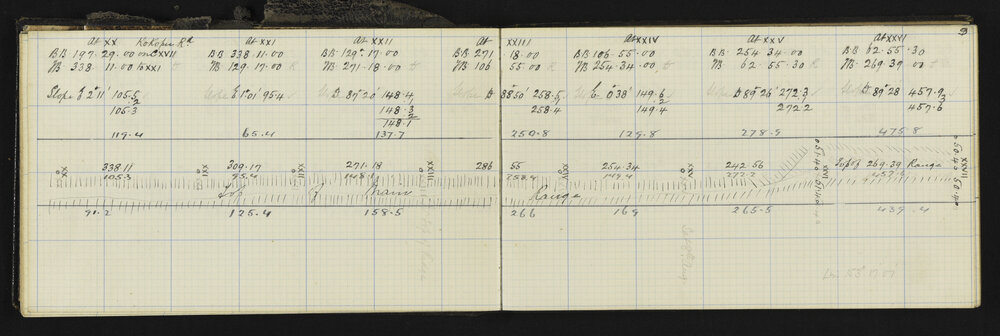 At XX Kokopu Rd
BB 197. 29. 00 on XVII
FB 338. 11. 00 to XXI
Slope E 2° 11' 105.5
.2
105.3
119.4
At XXI
BB 338. 11. 00
FB 129. 17. 00 R
Slope E 1° 01' 95.4
65.4
At XXII
BB 129. 17. 00
FB 271. 18. 00
D 87° 20' 148.4
148.3
.2
148.1
137.7
At XXIII
BB 271 18. 00
FB 106 55. 00 R
D 88° 50' 258.5
258.4
250.8
At XXIV
BB 106. 55. 00
FB 254. 34. 00
E 0° 38' 149.6
.2
149.4
129.8
At XXV
BB 254. 34. 00
FB 62. 55. 30 R
D 89° 26' 272.3
272.2
278.9
At XXVI
BB 62. 55. 30
FB 269. 39 00
D 89° 28 457.9
.3
457.6
475.8
9
XX 338.11 XXI 309.17 XXII 271.18 XXIII 286 55 XXIV 254.34 XXV 242 56 XXVI Top of 269.39 Range XXVII
105.3 95.4 148.1 258.4 149.4 272.2 457.6
Top of main Range
91.2 125.4 158.5 266 169 265.5 439.4